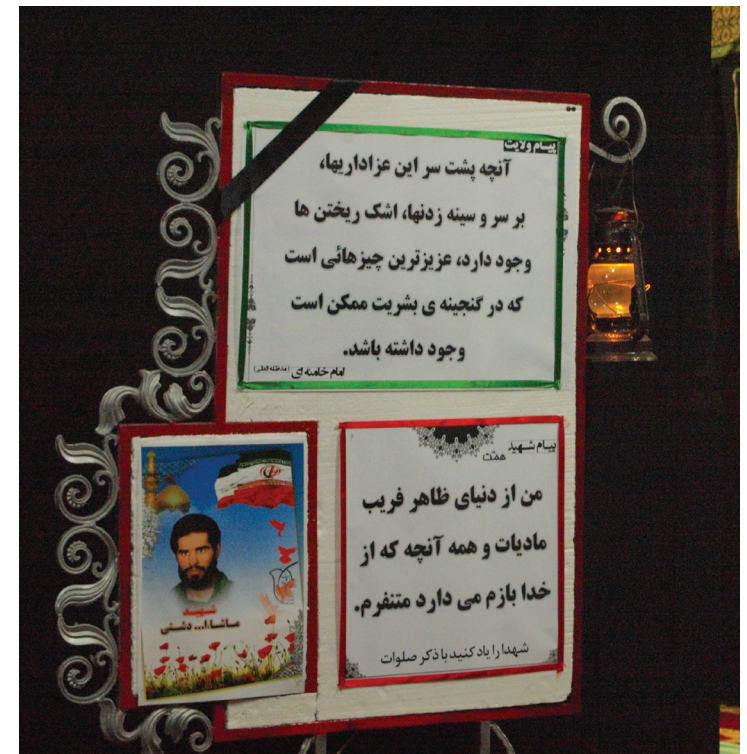 پیام ولایت
آنچه پشت سر این عزاداریها،
بر سر و سینه زدنها، اشک ریختن ها
وجود دارد، عزیزترین چیزهائی است
که در گنجینه ی بشریت ممکن است
وجود داشته باشد.
امام خامنه ای (مدظله العالی)
پیام شهید همّت
من از دنیای ظاهر فریب
مادیات و همه آنچه که از
خدا بازم می دارد متنفرم.
شهدا را یاد کنید با ذکر صلوات
شهید
ماشاا... دشتی